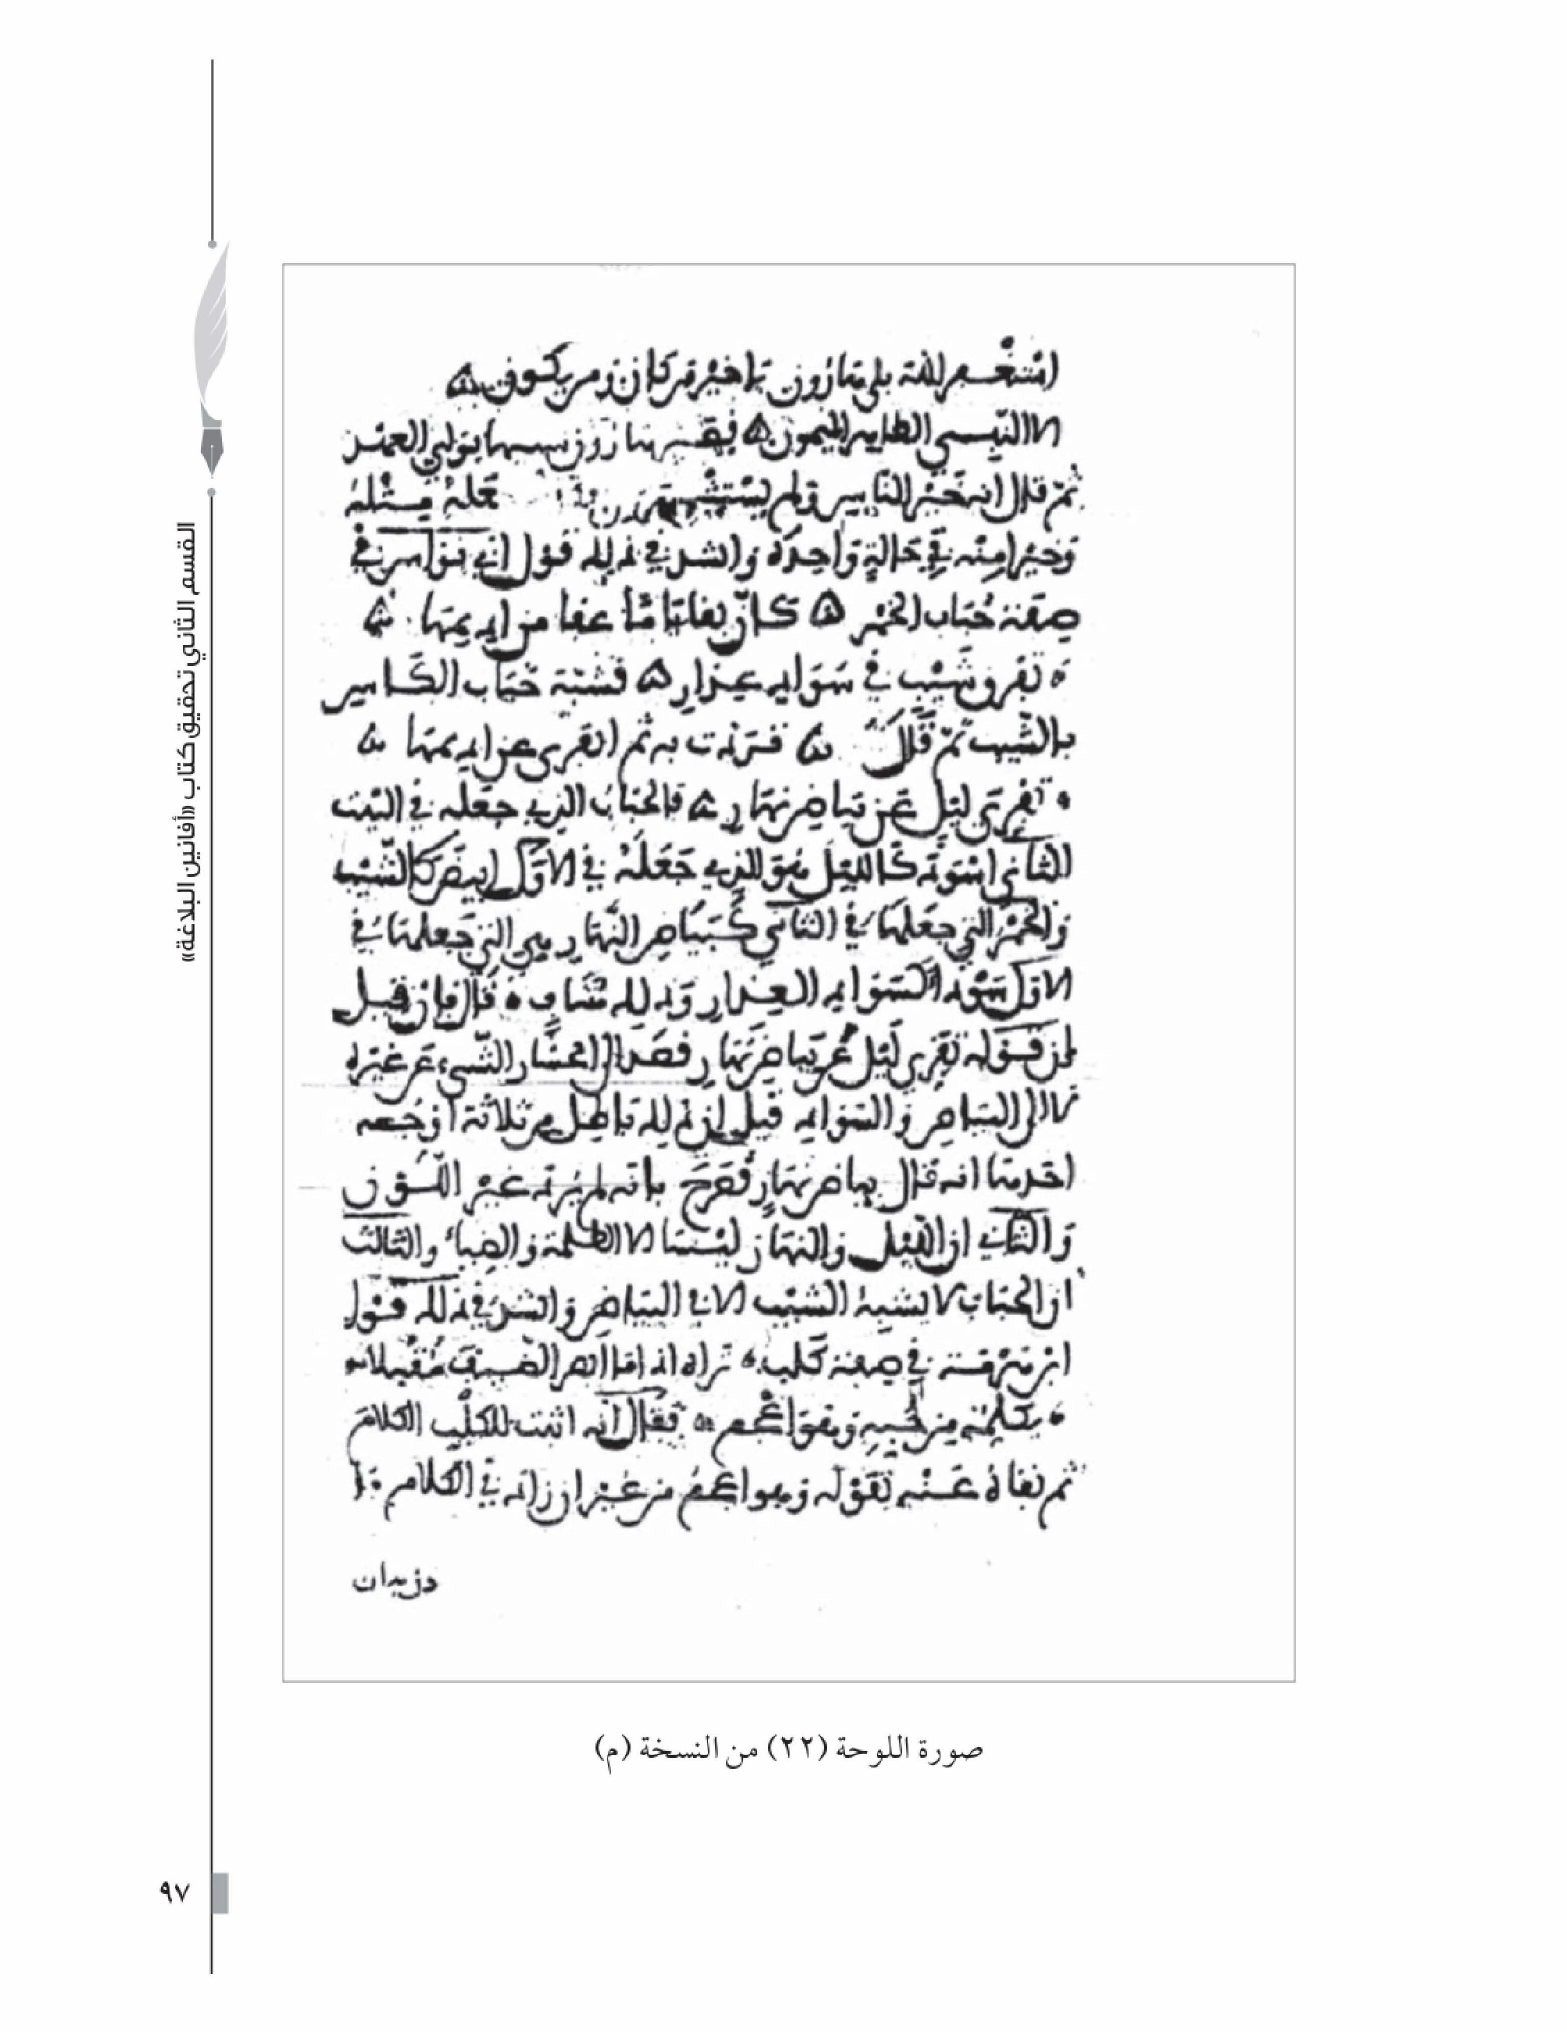 استغفر الله بلى هارون يا خير من كان ومن يكون
الا النبي الطاهر الميمون فيقصر هارون سيما بولي العهد
ثم قال انه خير الناس ولم يستثن جعله مثله
وخيرا منه في حالة واحدة وانشد في ذلك قول ابي نواس في
صفة حباب الخمر كان بقايا ما عفا من حبابها
تفرق شيب في سواد عذار فشبه حباب الكاس
بالشيب ثم قال فتردت به ثم انفرى عن اديمها
تفري ليل عن بياض نهار فالحباب الذي جعله في البيت
الثاني اسود كالليل هو الذي جعله في الاول ابيض كالشيب
والخمر التي جعلها في الثاني كبياض النهار هي التي جعلها في
الاول سود كسواد العذار وذلك مناف قال فان قيل
ان قوله تفري ليل عن بياض نهار قصد الى انحسار الشيء عن غيره
لا الى البياض والسواد قيل ان ذلك باطل من ثلاثة اوجه
احدها انه قال بياض نهار فصرح بانه لم يرد غير اللون
والثاني ان الليل والنهار ليسا الا الظلمة والضياء والثالث
ان الحباب لا يشبه الشيب الا في البياض وانشد في ذلك قول
ابن هرمة في صفة كلب تراه اذا ما ابصر الضيف مقبلا
يكلمه من حبه وهو اعجم فقال انه اثبت للكلب الكلام
ثم نفاه عنه بقوله وهو اعجم من غير ان زاد في الكلام
صورة اللوحة (٢٢) من النسخة (م)
القسم الثاني تحقيق كتاب «أفانين البلاغة»
٩٧